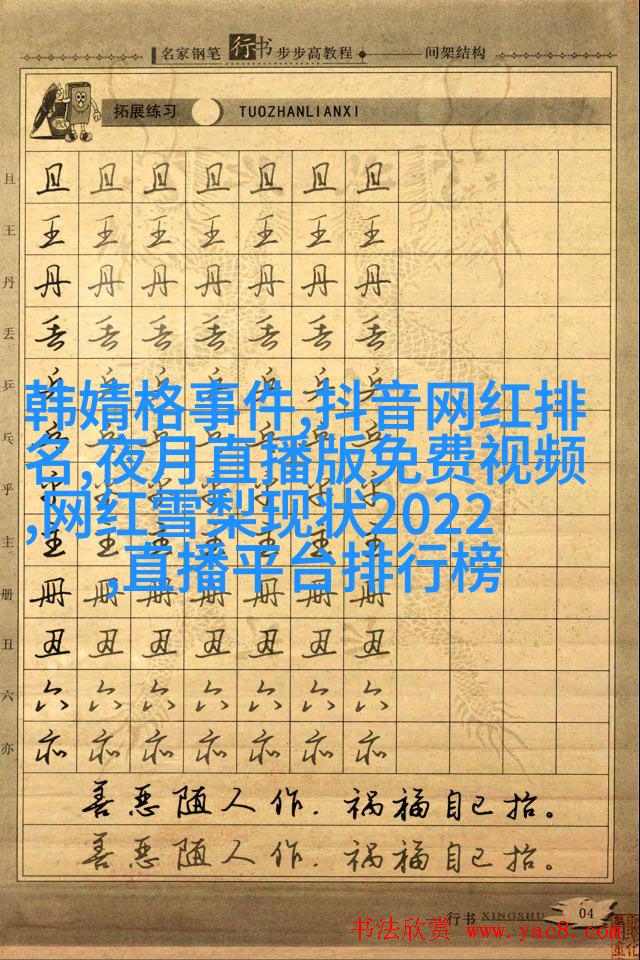 名家钢笔行书步步高教程 间架结构
拓展练习 TUOZHANLIANXI
且 且 且 且 且 且 且 且
王 王 王 王 王 王 王 王
丹 丹 丹 丹 丹 丹 丹 丹
丢 丢 丢 丢 丢 丢 丢 丢
乒 乒 乒 乒 乒 乒 乒 乒
韩婧格事件,抖音网红排
乓
名,夜月直播版免费视频
乎
,网红雪梨现状2022
主 主 主 主 主 主 主 主
,直播平台排行榜
册 册 册 册 册 册 册 册
丑 丑 丑 丑 丑 丑 丑 丑
六 六 六 六 六 六 六 六
亦 亦 亦 亦 亦 亦 亦 亦
善恶随人作,祸福自己招。
善恶随人作,祸福自己招。
行书 XINGSHU 04
书法欣赏 www.yac8.com